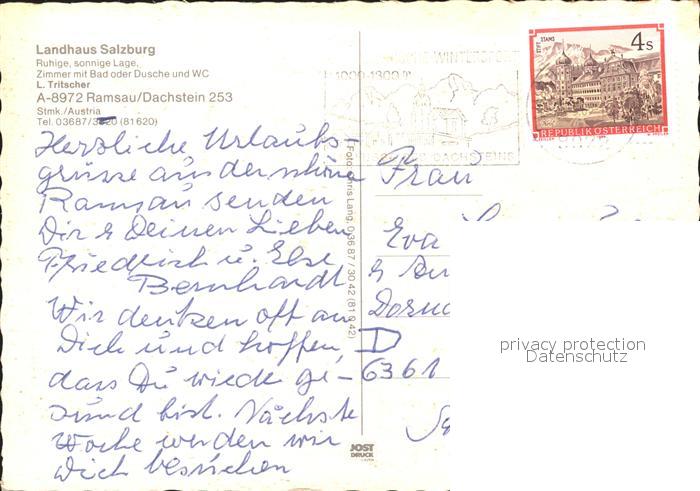 Landhaus Salzburg
Ruhige, sonnige Lage,
Zimmer mit Bad oder Dusche und WC
L. Tritscher
A-8972 Ramsau/Dachstein 253
Stmk./Austria
Tel. 03687/3820 (81620)
Herzliche Urlaubs-
grüsse aus der schöne
Ramsau senden
Dir & Deinen Lieben
Friedrich u. Else
Bernhardt
Wir denken oft an
Dich und hoffen,
dass Du wiede ge-
sund bist. Nächste
Woche werden wir
Dich besuchen
Foto: Chris Lang, 03687/3042 (81042)
JOST
DRUCK
WINTERSPORT
1000-1300
DACHSTEINS
STIFT STAMS
4 S
REPUBLIK ÖSTERREICH
Frau
Eva
&
D
6361
privacy protection
Datenschutz